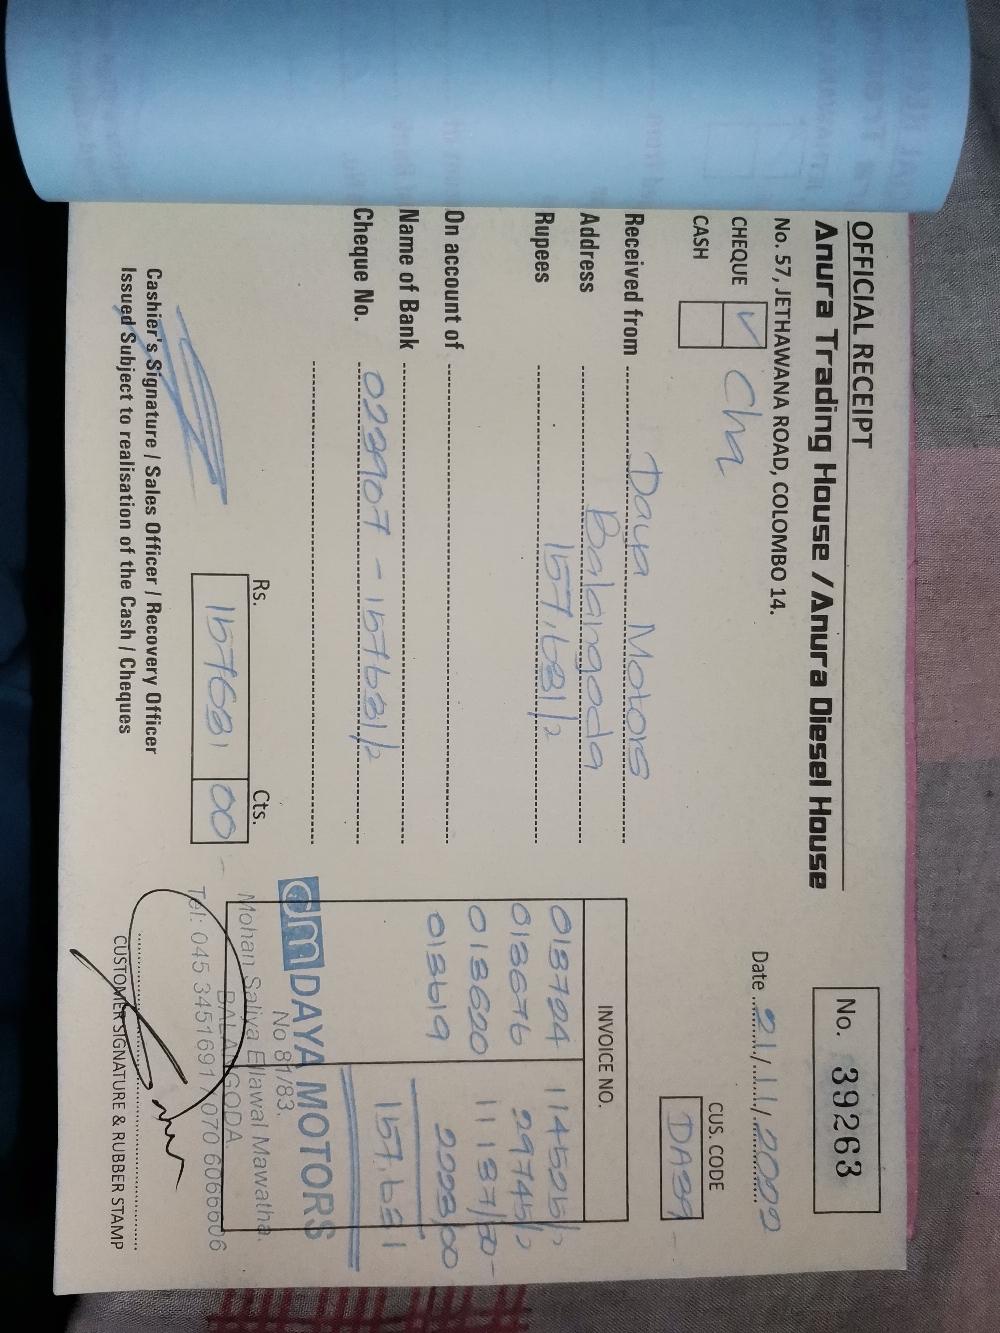 OFFICIAL RECEIPT
Anura Trading House / Anura Diesel House
No. 57, JETHAWANA ROAD, COLOMBO 14.
No. 39263
Date 21/11/2022
CHEQUE ✓ Chq
CASH
CUS. CODE
Received from Daya Motors
Address Balangoda
Rupees 157,681/=
On account of
Name of Bank
Cheque No. 023907 - 157681/=
INVOICE NO.
013724 114505/=
013676 29745/=
013620 11187/50
013619
157,681
Rs. Cts.
157681 00
DM DAYA MOTORS
No 81/83.
Mohan Saliya Ellawal Mawatha.
BALANGODA.
Tel: 045 3451691 / 070 6066606
Cashier's Signature / Sales Officer / Recovery Officer
Issued Subject to realisation of the Cash / Cheques
CUSTOMER SIGNATURE & RUBBER STAMP